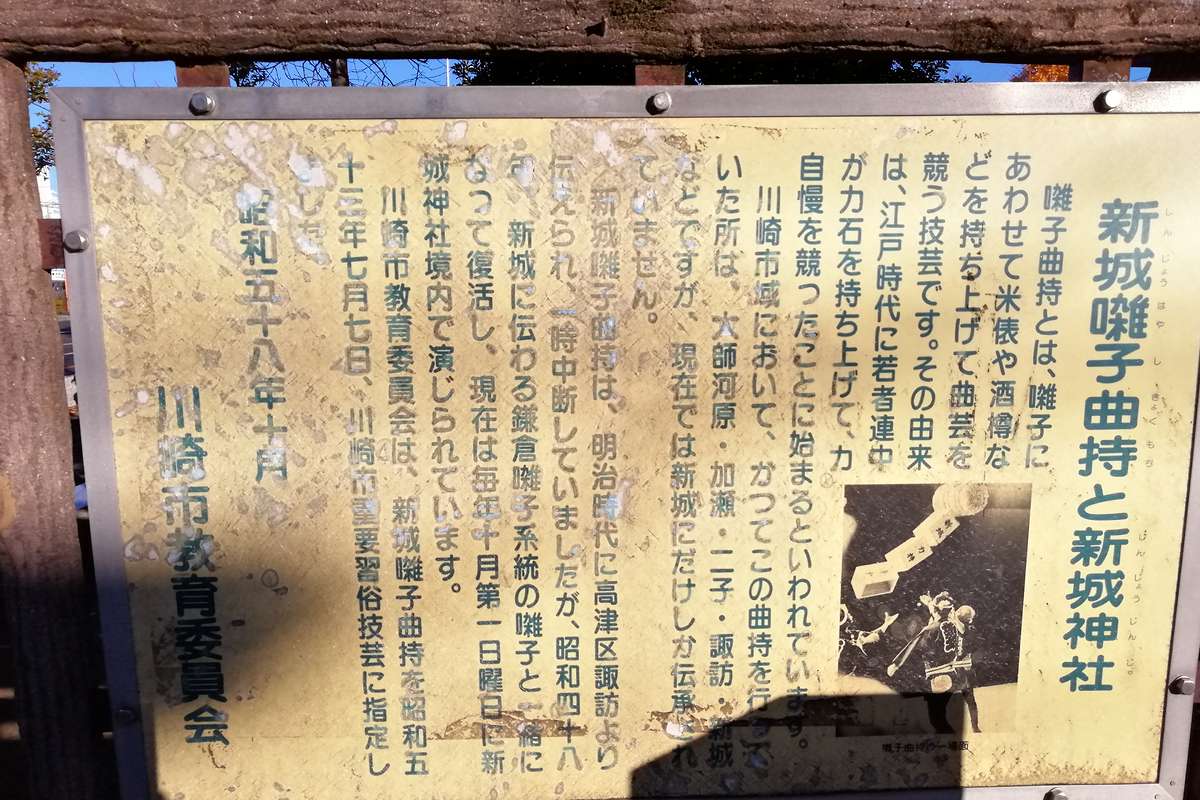 新城囃子曲持と新城神社
しんじょうはやしきょくもち
しんじょうじんじゃ
囃子曲持とは、囃子に
あわせて米俵や酒樽な
どを持ち上げて曲芸を
競う技芸です。その由来
は、江戸時代に若者連中
が力石を持ち上げて、力
自慢を競ったことに始まるといわれています。
川崎市域において、かつてこの曲持を行って
いた所は、大師河原・加瀬・二子・諏訪・新城
などですが、現在では新城にだけしか伝承され
ていません。
新城囃子曲持は、明治時代に高津区諏訪より
伝えられ、一時中断していましたが、昭和四十八
年、新城に伝わる鎌倉囃子系統の囃子と一緒に
なって復活し、現在は毎年十月第一日曜日に新
城神社境内で演じられています。
川崎市教育委員会は、新城囃子曲持を昭和五
十三年七月七日、川崎市重要習俗技芸に指定し
ました。
昭和五十八年十月
川崎市教育委員会
囃子曲持の一場面